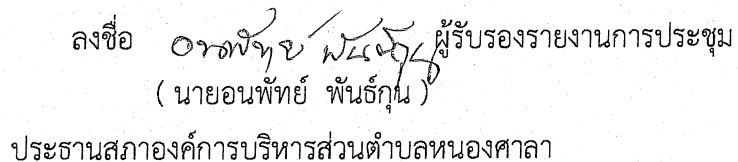 ลงชื่อ อนพัทย์ พันธ์กุน ผู้รับรองรายงานการประชุม
( นายอนพัทย์ พันธ์กุน )
ประธานสภาองค์การบริหารส่วนตำบลหนองศาลา